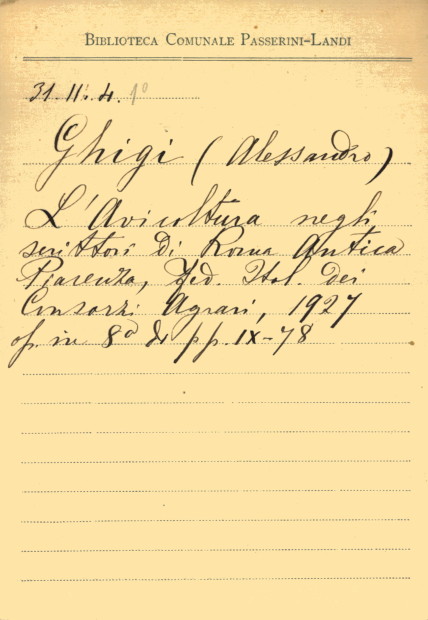 BIBLIOTECA COMUNALE PASSERINI-LANDI
31. II. 4. 1°
Ghigi (Alessandro)
L'Avicoltura negli
scrittori di Roma Antica
Piacenza, Fed. Ital. dei
Consorzi Agrari, 1927
op. in 8° di pp. IX-78